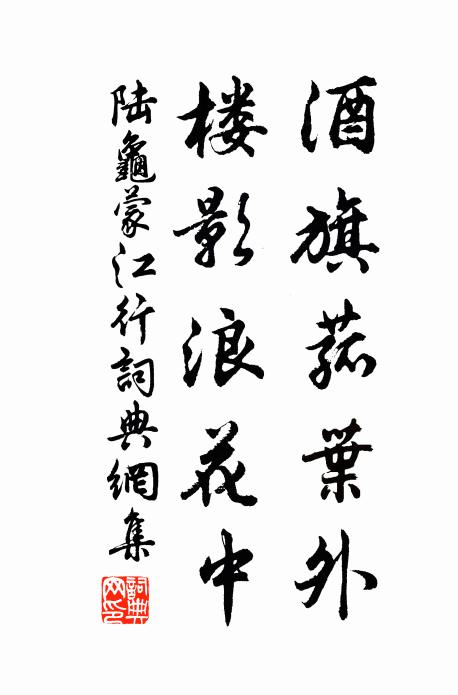 酒旗菰葉外
楼影浪花中
陆龜蒙江行詞典網集
詞典网印